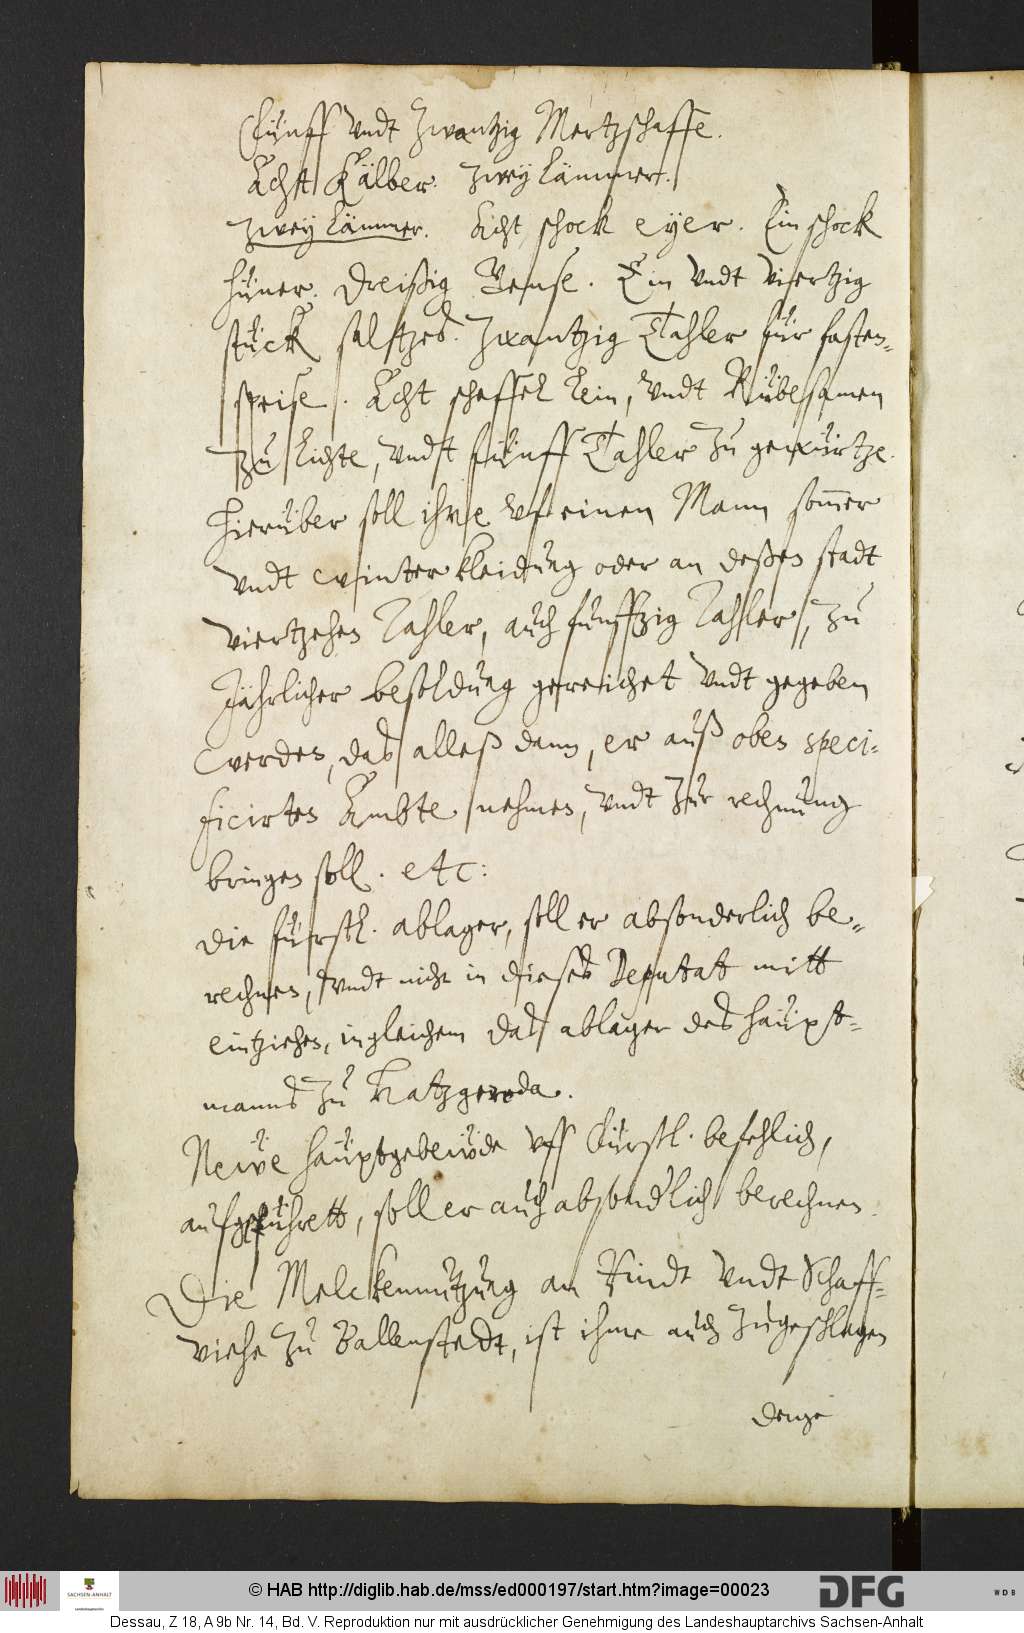 Fünff vndt Zwantzig Mertzschaffe.
Acht Kälber. Zwey Lämmer.
Zwey Lämmer. Acht schock eyer. Ein schock
hüner. dreißig Gense. Ein vndt viertzig
stück saltzes. Zwantzig Tahler für fasten-
speise. Acht scheffel Lein, vndt Rübesamen
Zu Lichte, vndt fünff Tahler Zu gewürtze.
Hierüber soll ihme vf einen Mann sommer
vndt winter kleidung oder an deßen stadt
viertzehen Tahler, auch funffzig Tahler, Zu
Jährlicher besoldung gereichet vndt gegeben
werden, das alleß dann, er auß oben speci-
ficirten Ambte nehmen, vndt Zur rechnung
bringen soll. etc:
die fürstl. ablager, soll er absonderlich be-
rechnen, vndt nicht in dieses Deputat mitt
eintziehen, ingleichem das ablager des haupt-
manns Zu Hatzgeroda.
Neüe hauptgebeüde vff Fürstl. befehlich,
aufgeführett, soll er auch absond'lich berechnen.
Die Melckennutzung an Rindt vndt Schaff-
viehe Zu Ballenstedt, ist ihme auch Zugeschlagen
© HAB http://diglib.hab.de/mss/ed000197/start.htm?image=00023
DFG
WDB
SACHSEN-ANHALT
Dessau, Z 18, A 9b Nr. 14, Bd. V. Reproduktion nur mit ausdrücklicher Genehmigung des Landeshauptarchivs Sachsen-Anhalt